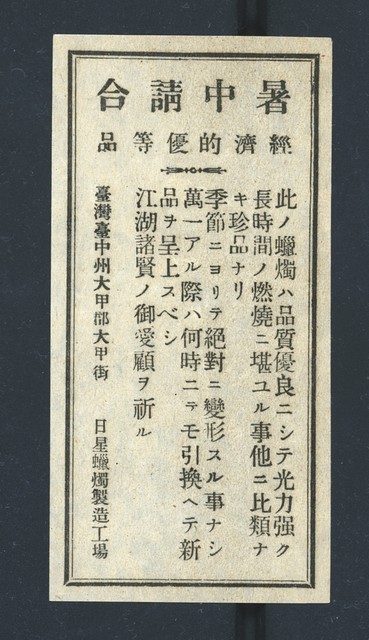 暑中請合
經濟的優等品
此ノ蠟燭ハ品質優良ニシテ光力强ク
長時間ノ燃燒ニ堪ユル事他ニ比類ナ
キ珍品ナリ
季節ニヨリテ絕對ニ變形スル事ナシ
萬一アル際ハ何時ニテモ引換ヘテ新
品ヲ呈上スベシ
江湖諸賢ノ御愛顧ヲ祈ル
臺灣臺中州大甲郡大甲街 日星蠟燭製造工場